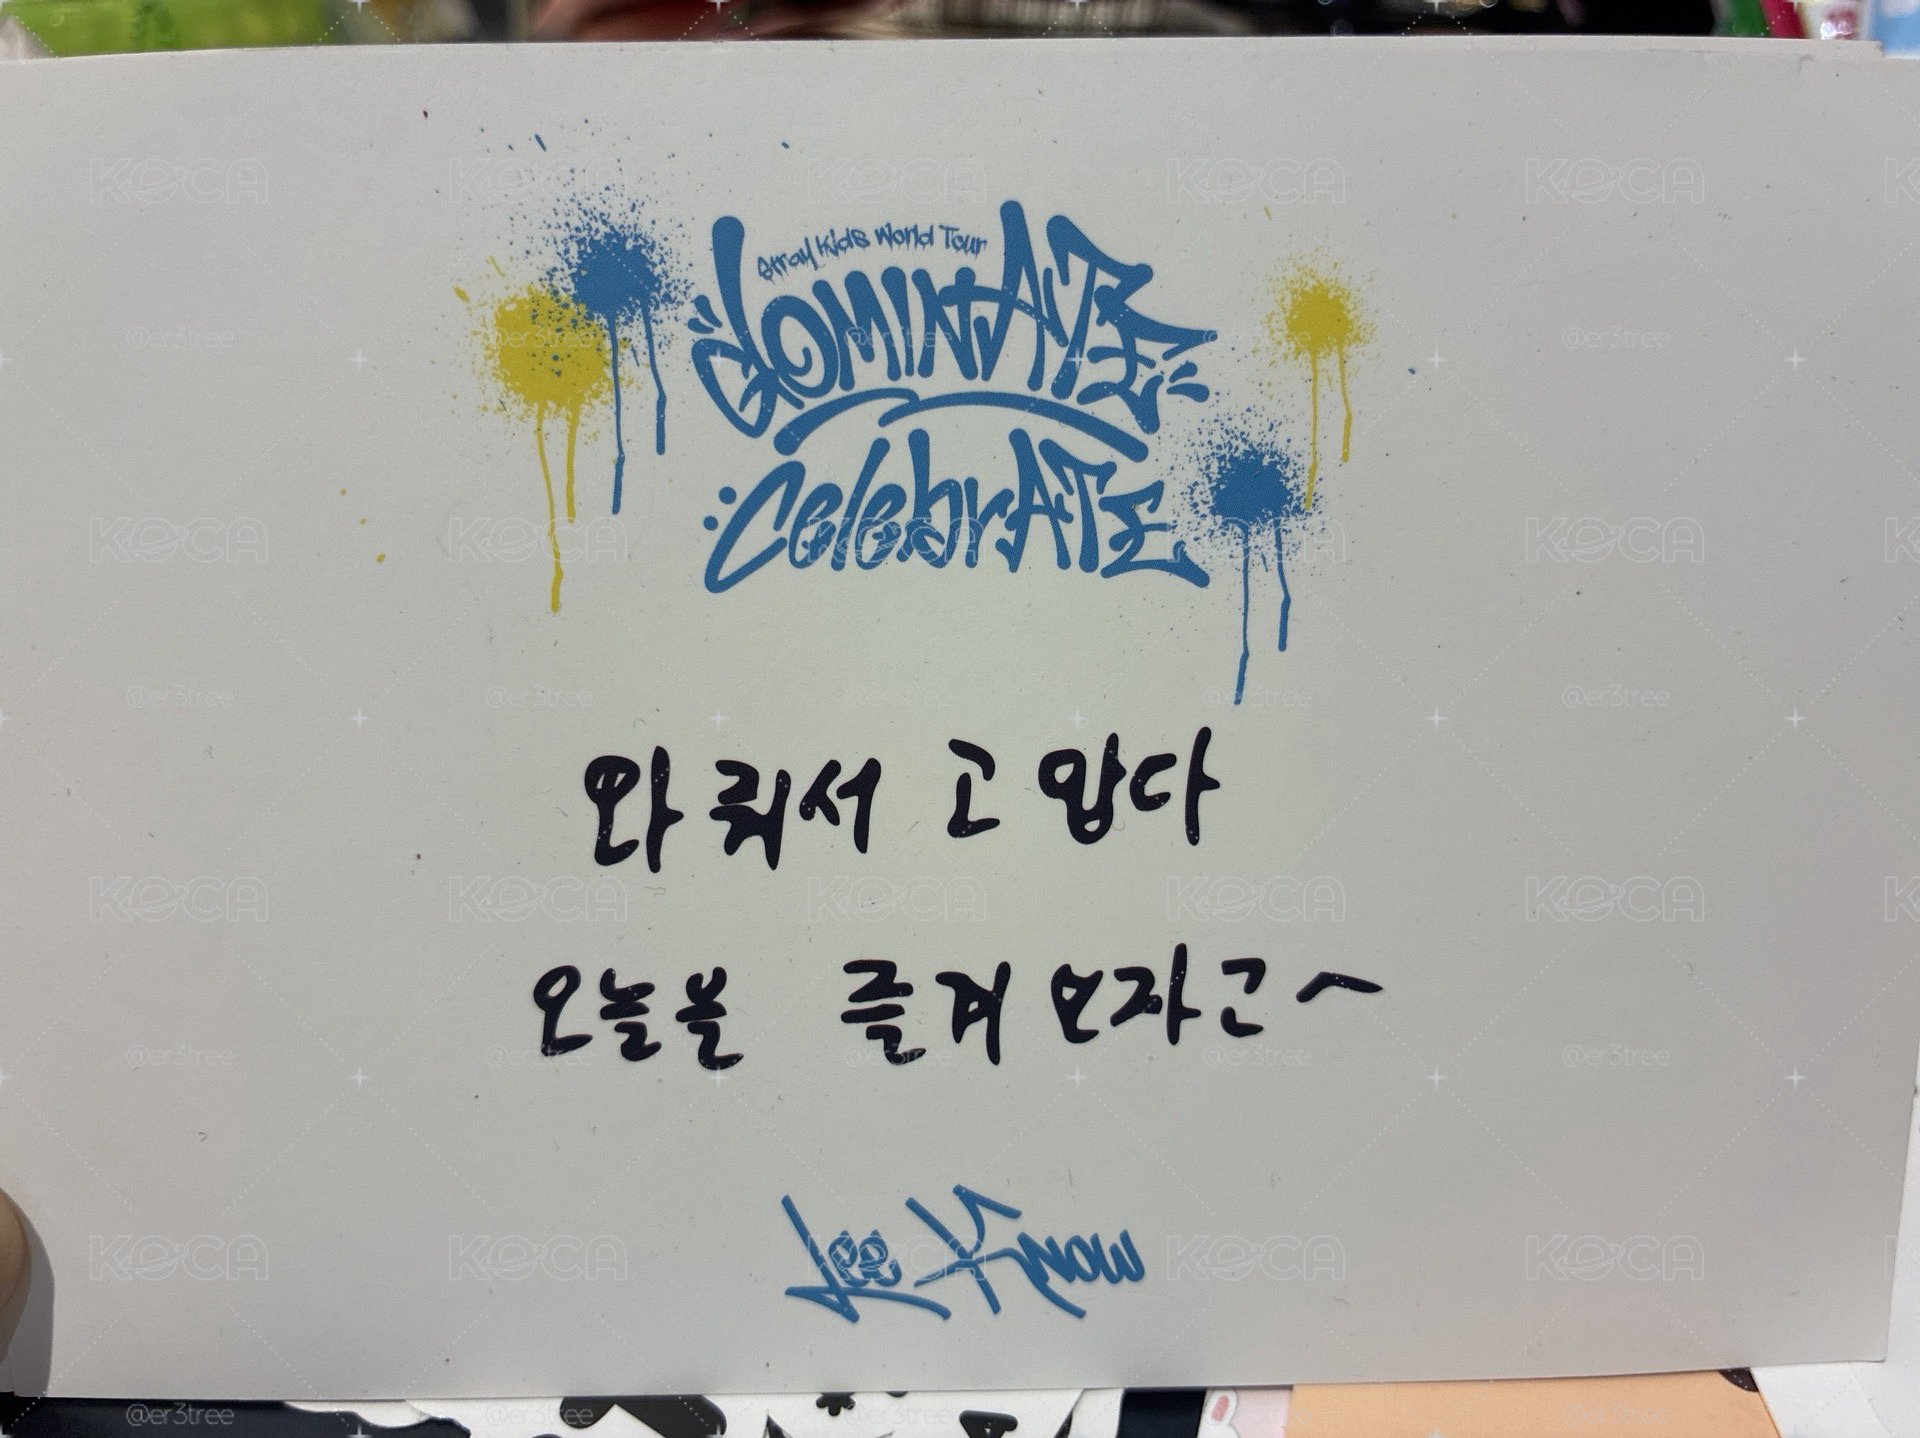 Stray Kids World Tour
dominATE
celebrATE
와줘서 고맙다
오늘을 즐겨보자고~
Lee Know
KOCA
@er3tree